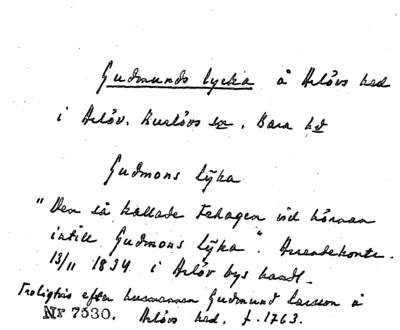 Gudmunds lycka å Arlövs hed
i Arlöv. Burlövs sn. Bara hd
Gudmons lÿka
"Den så kallade Fehagen vid hörnan
intill Gudmons lÿka". Arrendekontr.
13/11 1834 i Arlöv bys handl.
Troligtvis efter husmannen Gudmund Larsson å
Nr 7530. Arlövs hed. f. 1763.